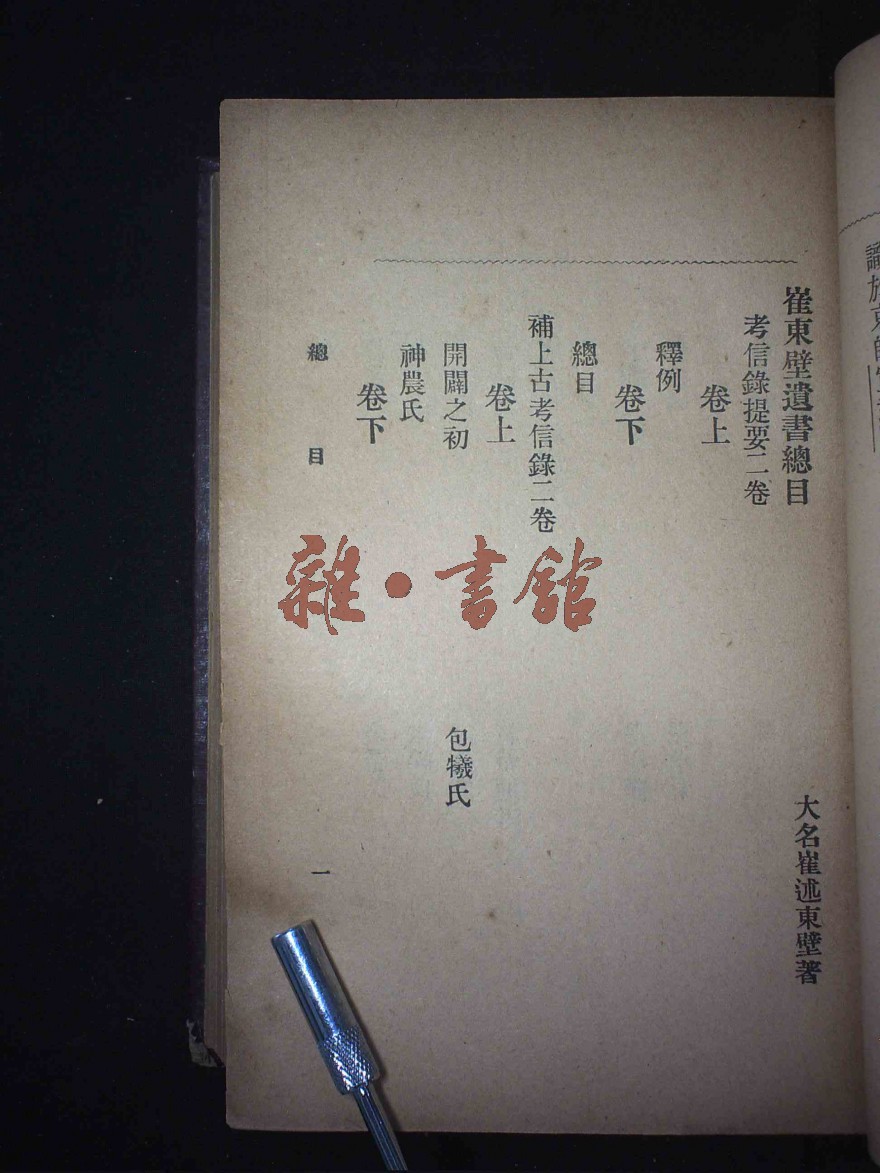 崔東壁遺書總目
大名崔述東壁著
考信錄提要二卷
卷上
釋例
卷下
總目
補上古考信錄二卷
卷上
開闢之初
包犧氏
神農氏
卷下
總目
一
雜·書館